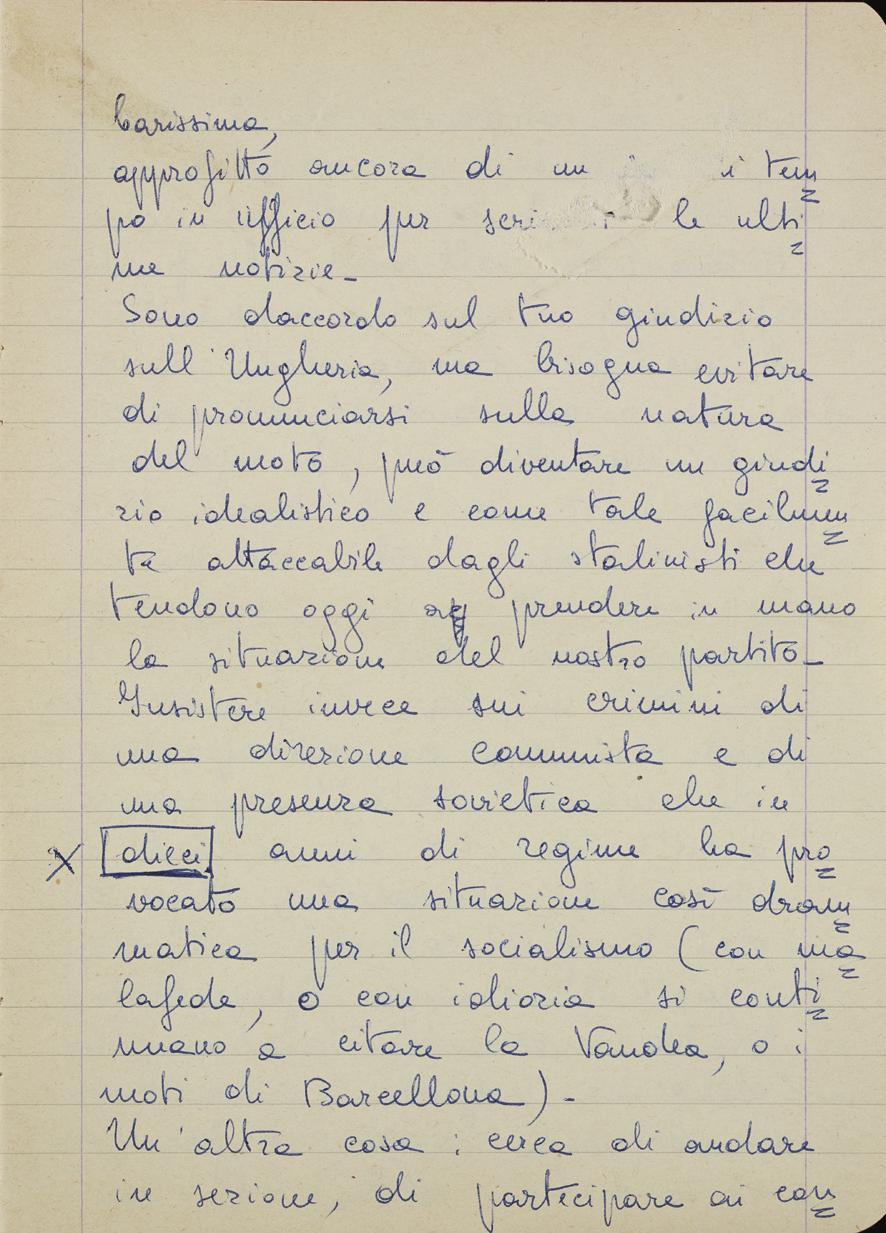 Carissima,
approfitto ancora di un i tem=
po in ufficio per scri le ulti=
me notizie_
Sono daccordo sul tuo giudizio
sull'Ungheria, ma bisogna evitare
di pronunciarsi sulla natura
del moto, può diventare un giudi=
zio idealistico e come tale facilmen=
te attaccabile dagli stalinisti che
tendono oggi a prendere in mano
la situazione del nostro partito_
Insistere invece sui crimini di
una direzione comunista e di
una presenza sovietica che in
X dieci anni di regime ha pro=
vocato una situazione così dram=
matica per il socialismo (con ma=
lafede, o con idiozia si conti=
nuano a citare la Vandea, o i
moti di Barcellona)-
Un'altra cosa: cerca di andare
in sezione, di partecipare ai con=